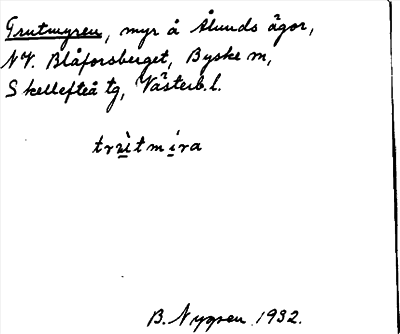 Trutmyren, myr å Ålunds ägor,
NV. Blåforsberget, Byske m,
Skellefteå tg, Västerb.l.
B. Nygren 1932.